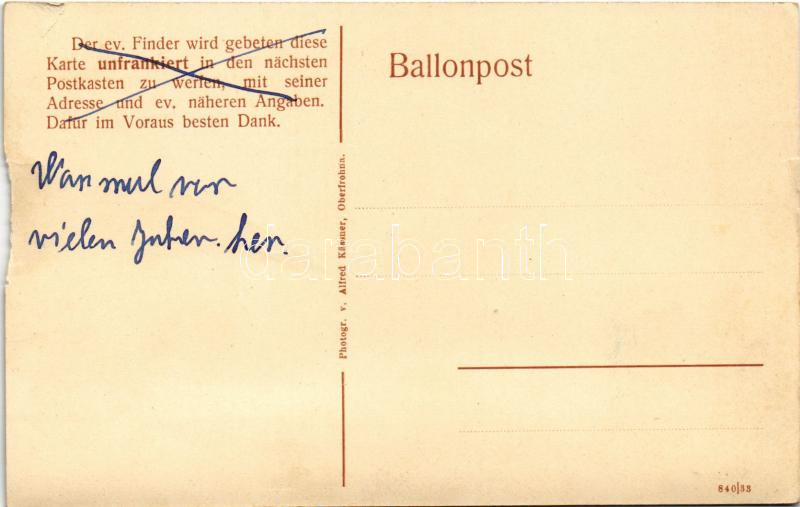 Der ev. Finder wird gebeten diese
Karte unfrankiert in den nächsten
Postkasten zu werfen, mit seiner
Adresse und ev. näheren Angaben.
Dafür im Voraus besten Dank.
Ballonpost
War mal vor
vielen Jahren her.
Photogr. v. Alfred Kässner, Oberfrohna.
darabanth
840/33